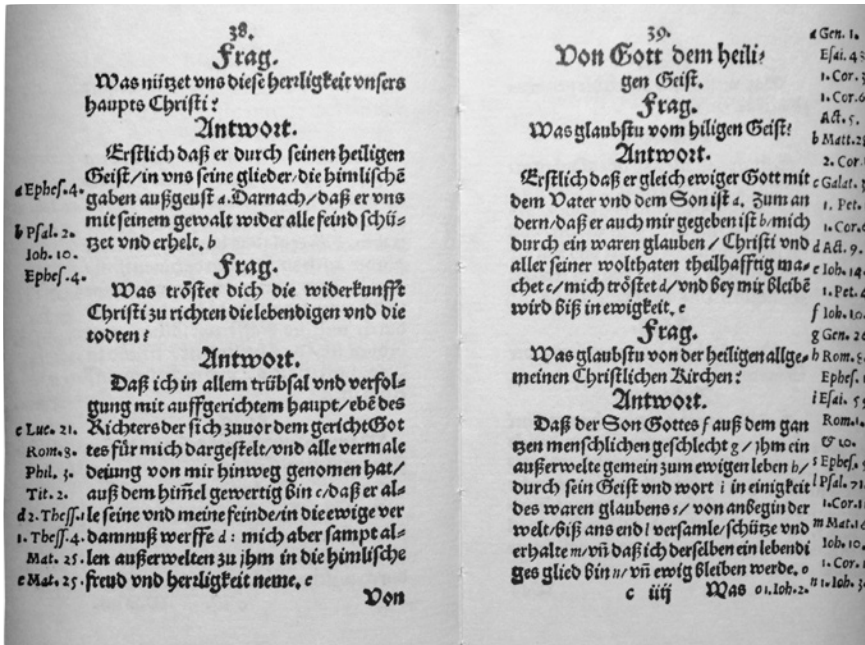 38.
Frag.
Was nützet vns diese herrligkeit vnsers
haupts Christi?
Antwort.
Erstlich daß er durch seinen heiligen
Geist/in vns seine glieder/die himlischē
gaben außgeust a. Darnach/daß er vns
mit seinem gewalt wider alle feind schü-
tzet vnd erhelt. b
a Ephes. 4.
b Psal. 2.
Ioh. 10.
Ephes. 4.
Frag.
Was tröstet dich die widerkunfft
Christi zu richten die lebendigen vnd die
todten?
Antwort.
Daß ich in allem trübsal vnd verfol-
gung mit auffgerichtem haupt/ebē des
Richters der sich zuuor dem gericht Got
tes für mich dargestelt/vnd alle vermale
deiung von mir hinweg genomen hat/
auß dem him̄el gewertig bin c/daß er al-
le seine vnd meine feinde/in die ewige ver
damnuß werffe d: mich aber sampt al-
len außerwelten zu jhm in die himlische
freud vnd herrligkeit neme. e
c Luc. 21.
Rom. 8.
Phil. 3.
Tit. 2.
d 2. Thess. 1
1. Thess. 4.
Mat. 25.
e Mat. 25.
Von
39.
Von Gott dem heili-
gen Geist.
Frag.
Was glaubstu vom hiligen Geist?
Antwort.
Erstlich daß er gleich ewiger Gott mit
dem Vater vnd dem Son ist a. Zum an
dern/daß er auch mir gegeben ist b/mich
durch ein waren glauben/Christi vnd
aller seiner wolthaten theilhafftig ma-
chet c/mich tröstet d/vnd bey mir bleibē
wird biß in ewigkeit. e
Frag.
Was glaubstu von der heiligen allge-
meinen Christlichen Kirchen?
Antwort.
Daß der Son Gottes f auß dem gan
tzen menschlichen geschlecht g/jhm ein
außerwelte gemein zum ewigen leben h/
durch sein Geist vnd wort i in einigkeit
des waren glaubens s/von anbegin der
welt/biß ans end l versamle/schütze vnd
erhalte m/vn̄ daß ich derselben ein lebendi
ges glied bin n/vn̄ ewig bleiben werde. o
c iiij Was
a Gen. 1.
Esai. 4
1. Cor.
1. Cor. 6
Act. 5.
b Matt. 2
2. Cor.
c Galat.
1. Pet.
1. Cor. 6
d Act. 9.
e Ioh. 14
1. Pet. 4
f Ioh. 10.
g Gen. 2
h Rom. 8.
Ephes.
i Esai. 5
Rom. 1.
& 10.
s Ephes.
l Psal. 71
1. Cor. 11
m Mat. 16
Ioh. 10.
1. Cor. 1
n 1. Ioh. 3
o 1. Ioh. 2.